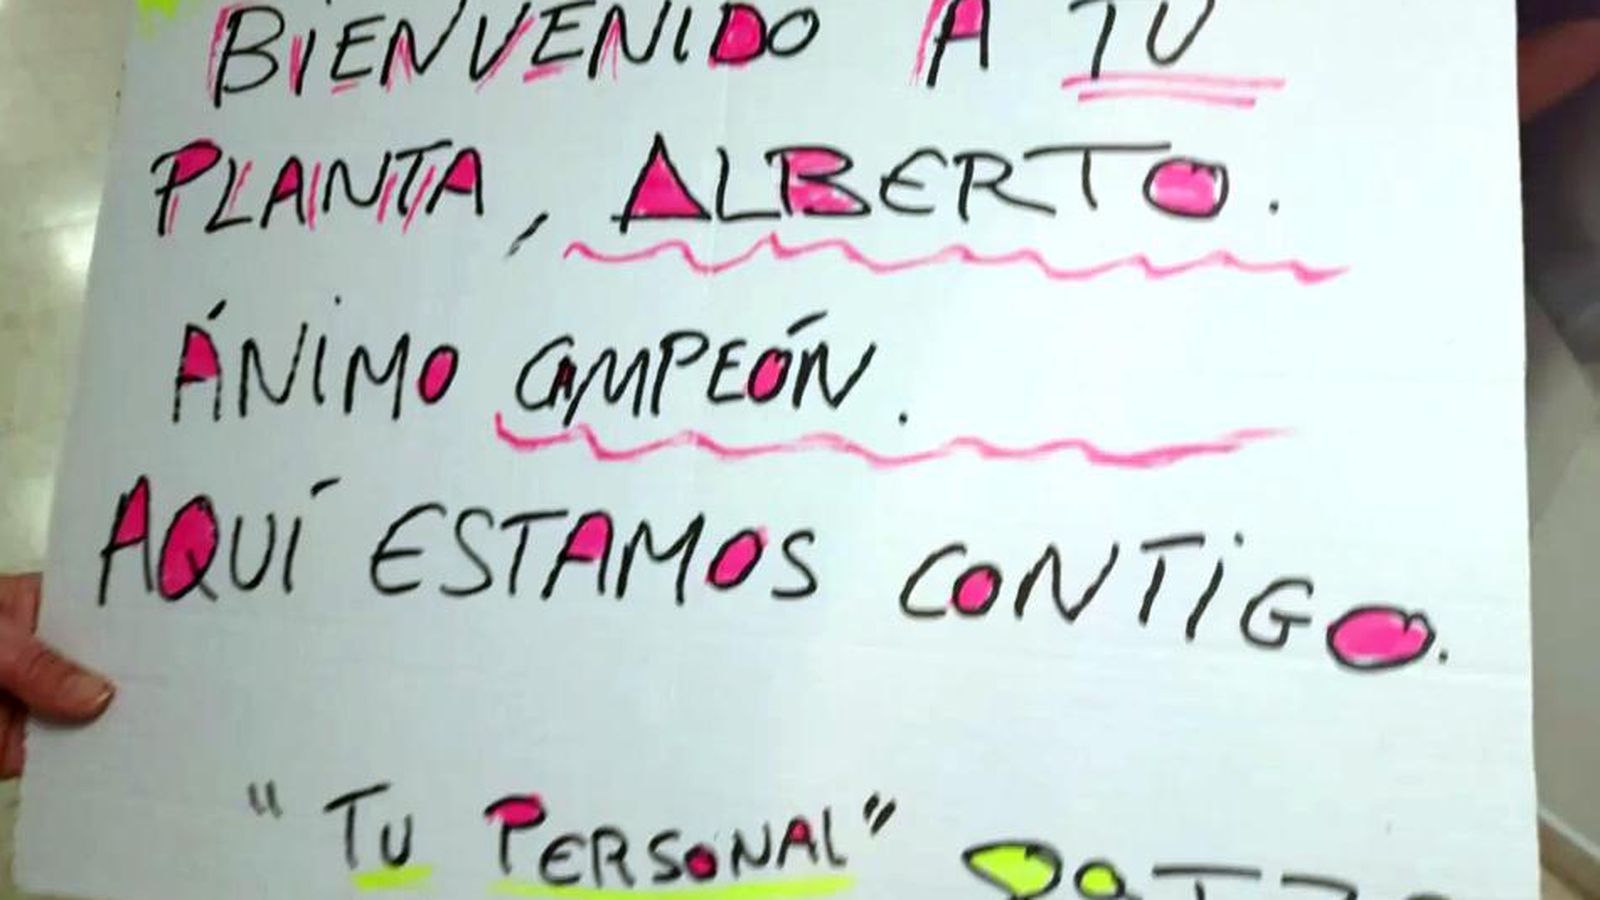 BIENVENIDO A TU
PLANTA, ALBERTO.
ÁNIMO CAMPEÓN.
AQUÍ ESTAMOS CONTIGO.
"TU PERSONAL"